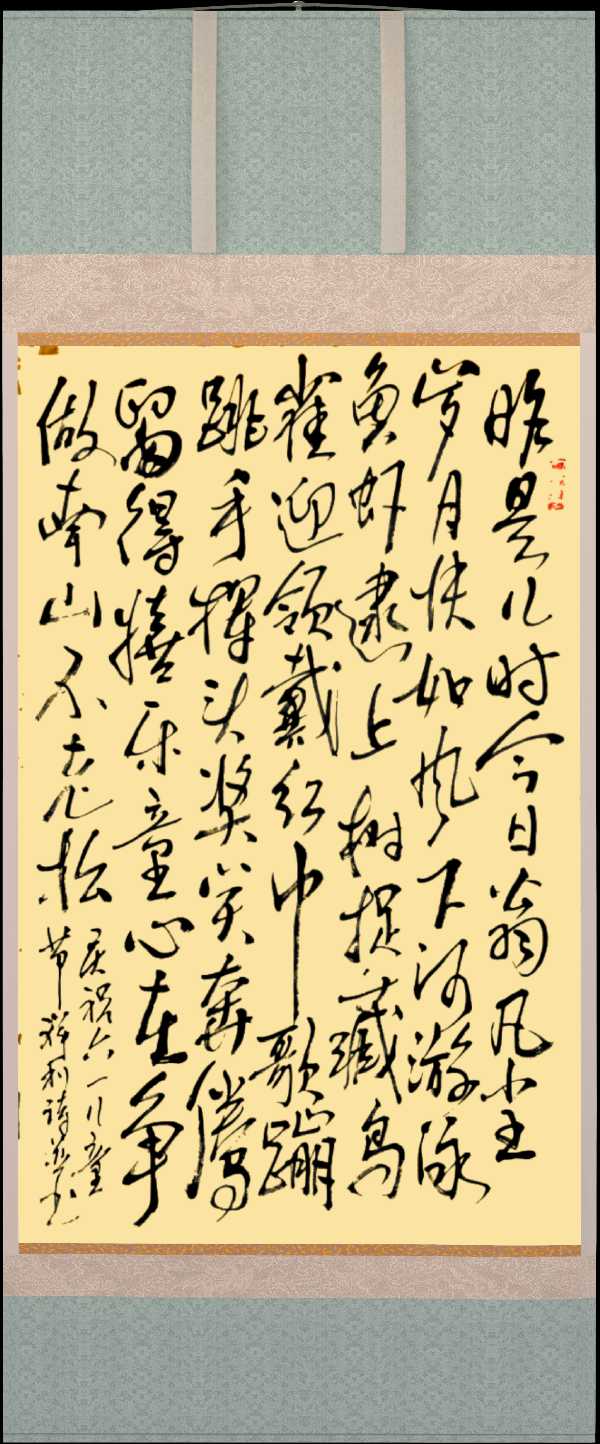 昨是儿时今日翁凡尘
岁月快如风下河游泳
鱼虾逮上树捉藏鸟
雀迎领戴红巾歌蹦
跳手头奖笑奔腾
留得嬉乐童心在争
做南山不老松
庆祝六一儿童
节利诗并书